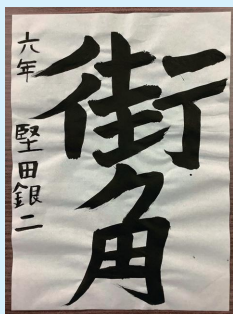 街角
六年 堅田銀二